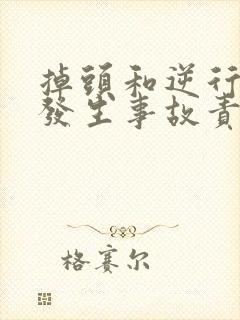 掉頭和逆行
發生事故責
格賽尔